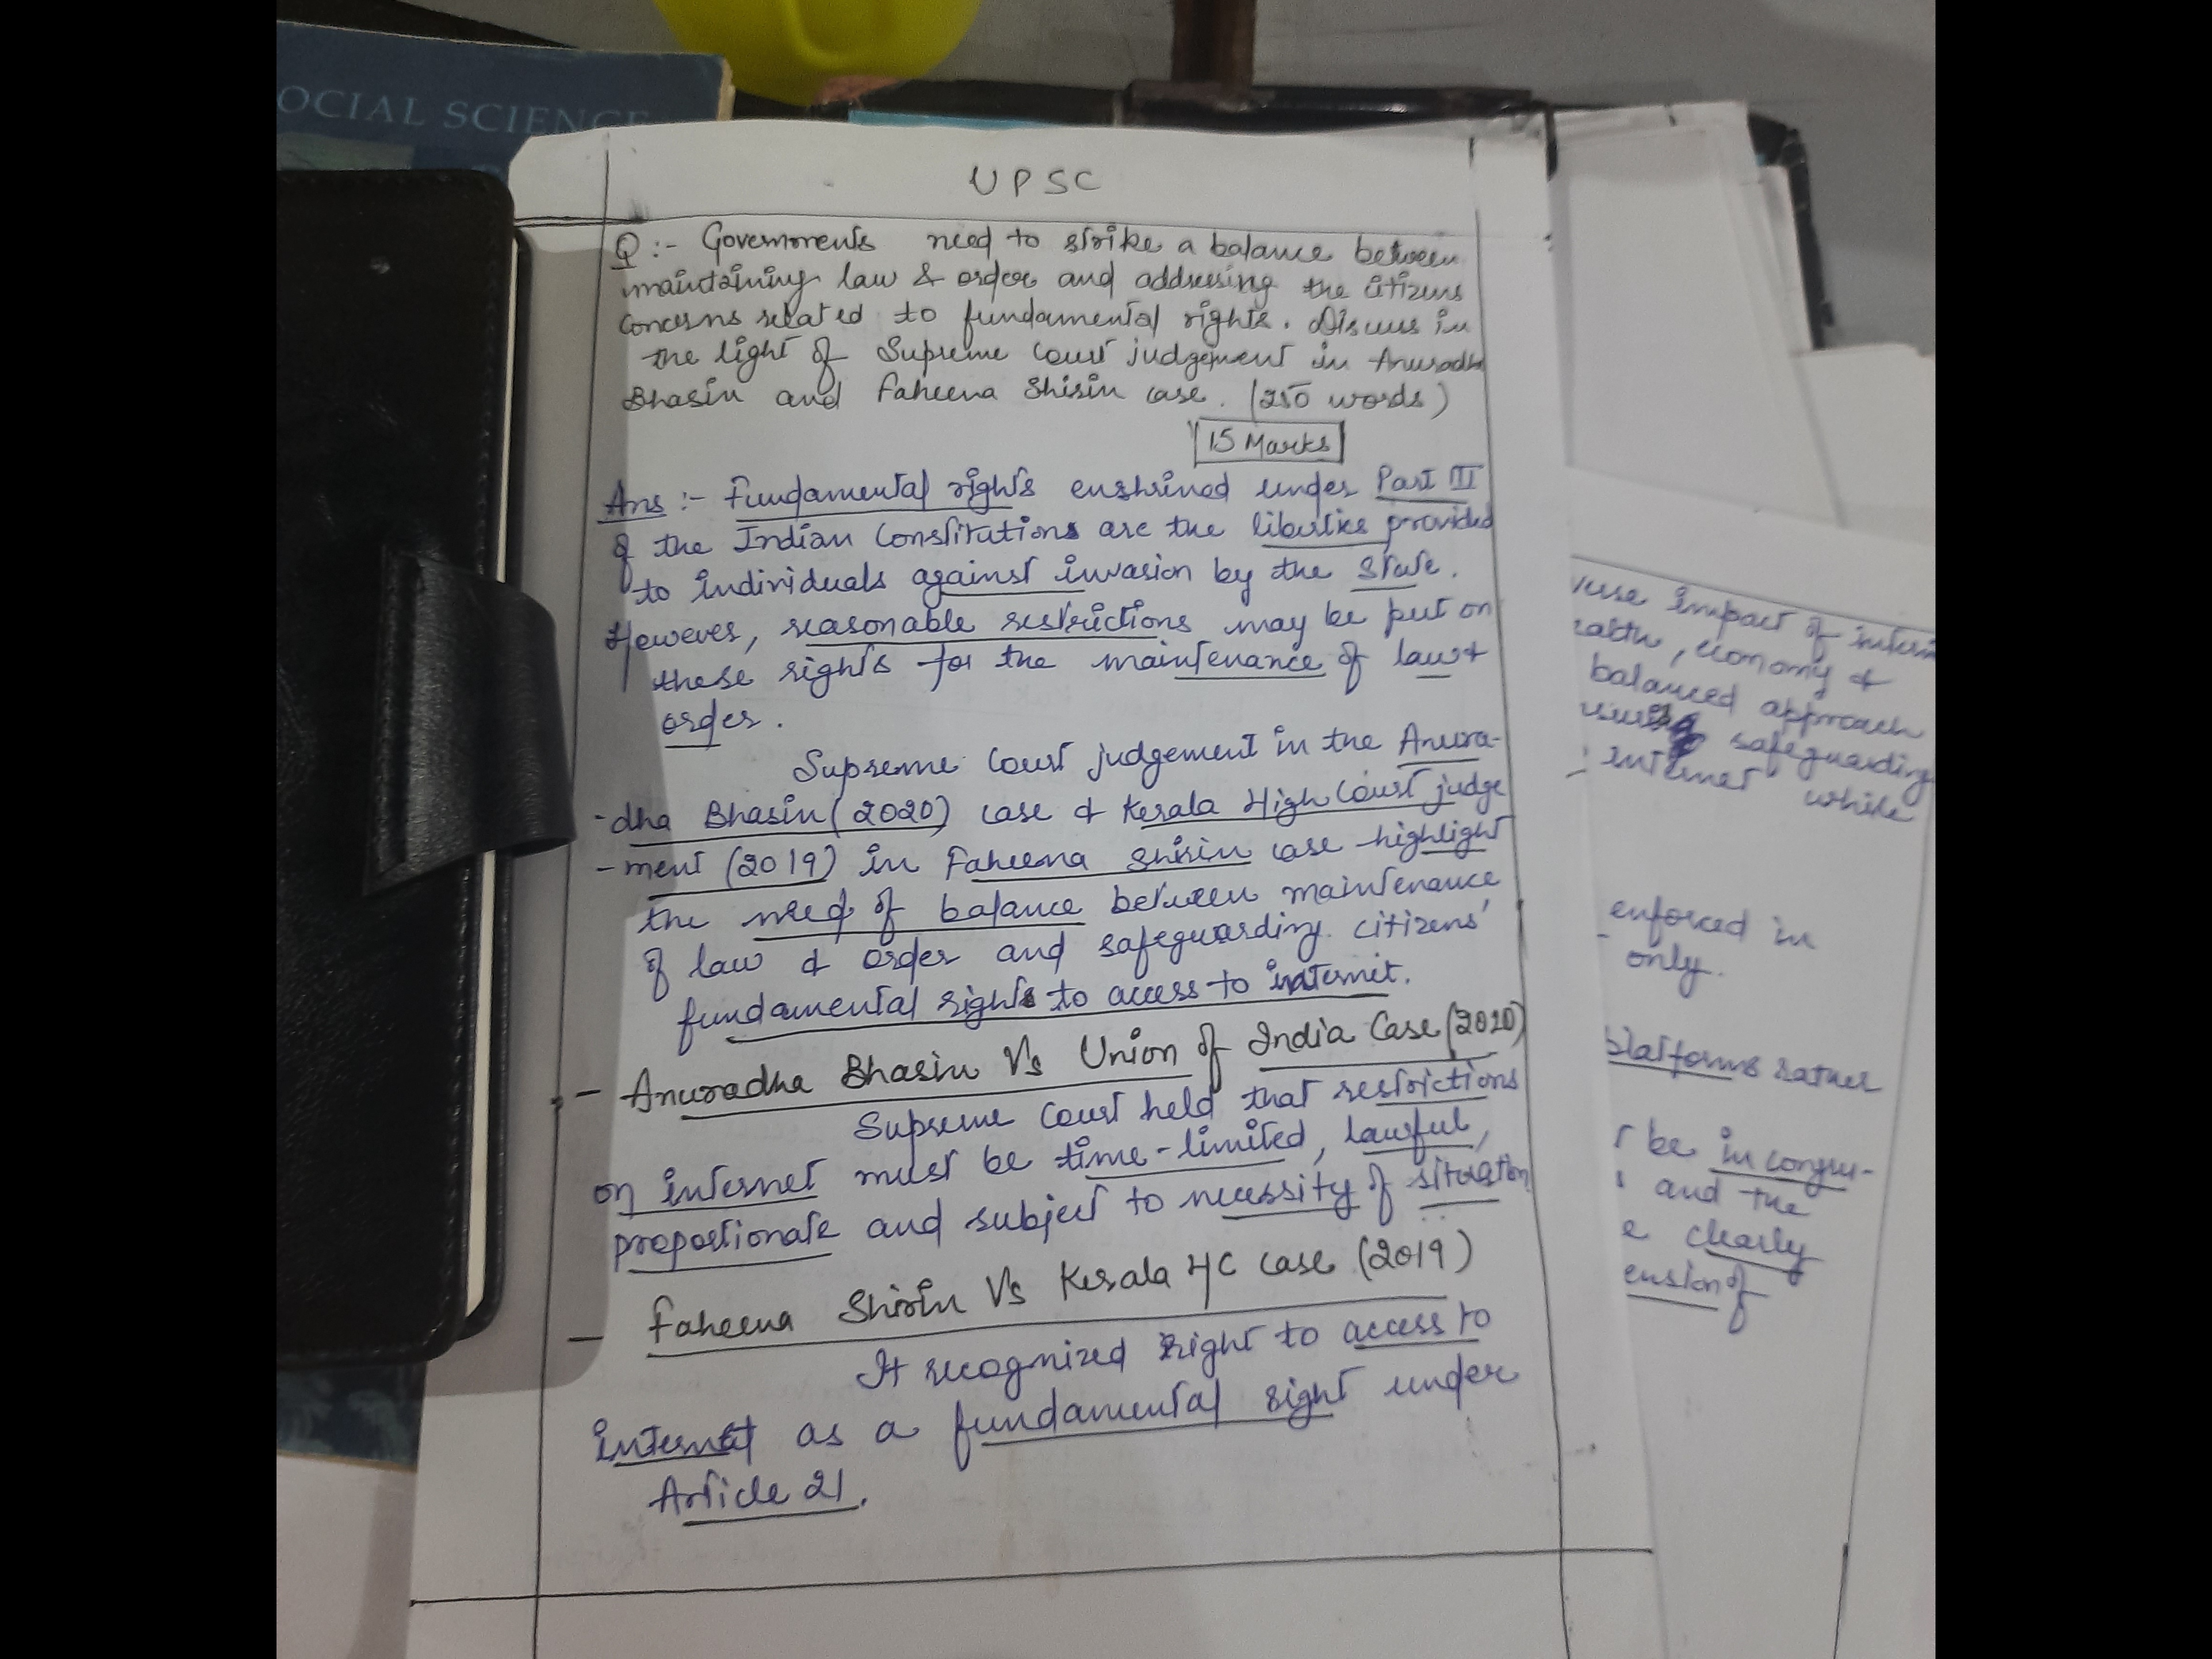 OCIAL SCIENCE
UPSC
Q :- Governments need to strike a balance between
maintaining law & order and addressing the citizens
concerns related to fundamental rights. Discuss in
the light of Supreme Court judgement in Anuradha
Bhasin and Faheena Shirin case. (250 words)
15 Marks
Ans :- Fundamental rights enshrined under Part III
of the Indian Constitutions are the liberties provided
to individuals against invasion by the State.
However, reasonable restrictions may be put on
these rights for the maintenance of law &
order.
Supreme Court judgement in the Anura-
-dha Bhasin (2020) case & Kerala High Court judge
-ment (2019) in Faheena Shirin case highlight
the need of balance between maintenance
of law & order and safeguarding citizens'
fundamental rights to access to internet.
- Anuradha Bhasin Vs Union of India Case (2020)
Supreme Court held that restrictions
on internet must be time-limited, lawful,
proportionate and subject to necessity of situation
- Faheena Shirin Vs Kerala HC case (2019)
It recognized Right to access to
internet as a fundamental right under
Article 21.
verse impact of intern
ealth, economy &
balanced approach
safeguarding
internet while
enforced in
only.
platforms rather
t be in congru-
and the
e clearly
ension of